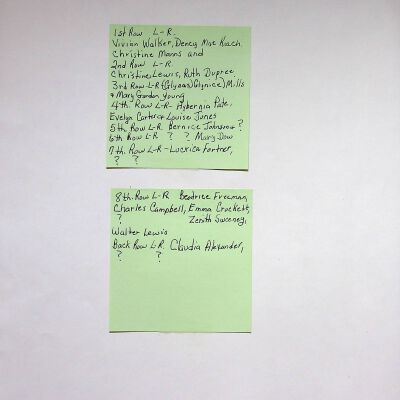 1st Row L-R.
Vivian Walker, Dency Mae Roach,
Christine Manns and
2nd Row L-R.
Christine Lewis, Ruth Dupree
3rd Row L-R (Glynice) Mills
& Mary Gordon Young
4th. Row L-R- Pate,
Evelyn Carter & Louise Jones
5th Row L-R Bernice Johnson & ?
6th. Row L-R ? ? Mary Dow
7th. Row L-R - Lucricia Fortner,
? ?
8th. Row L-R Beatrice Freeman,
Charles Campbell, Emma Crockett,
? Zenith Sweeney,
Walter Lewis
Back Row L-R. Claudia Alexander,
? ?